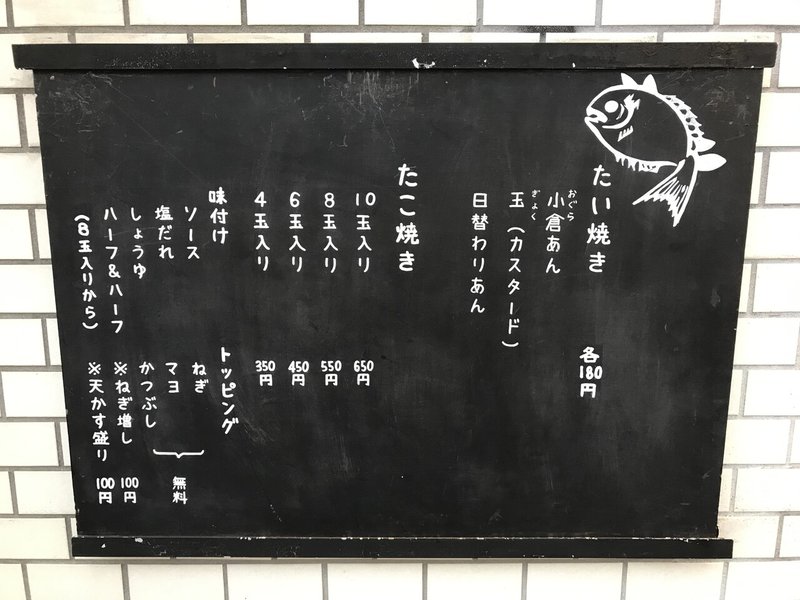 たい焼き 各180円
小倉あん
おぐら
玉(カスタード)
ぎょく
日替わりあん
たこ焼き
10玉入り 650円
8玉入り 550円
6玉入り 450円
4玉入り 350円
味付け
ソース
塩だれ
しょうゆ
ハーフ&ハーフ
(8玉入りから)
トッピング
ねぎ
マヨ
かつぶし
無料
※ねぎ増し 100円
※天かす盛り 100円